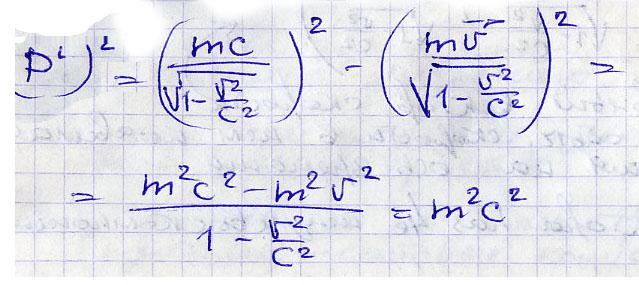 (pⁱ)² = (mc / √(1 - v²/c²))² - (m\vec{v} / √(1 - v²/c²))² =
= (m²c² - m²v²) / (1 - v²/c²) = m²c²